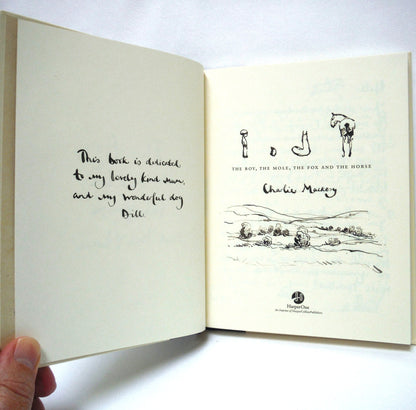 This book is dedicated
to my lovely kind mum,
and my wonderful dog
Dill.
THE BOY, THE MOLE, THE FOX AND THE HORSE
Charlie Mackesy
HarperOne
An Imprint of HarperCollinsPublishers